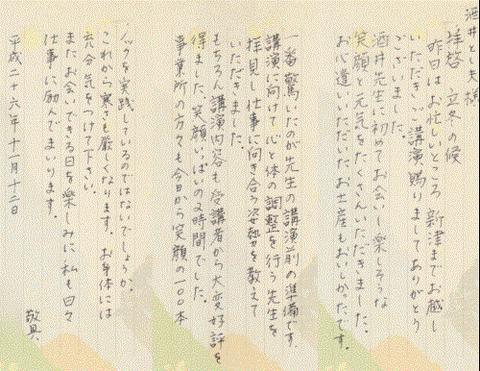 酒井とし夫様
拝啓 立冬の候
昨日はお忙しいところ 新津までお越し
いただきご講演賜りましてありがとう
ございました。
酒井先生に初めてお会いし楽しそうな
笑顔と元気をたくさんいただきました。
お心遣いいただいたお土産もおいしかったです。
一番驚いたのが先生の講演前の準備です。
講演に向けて心と体の調整を行う先生を
拝見し仕事に向き合う姿勢を教えて
いただきました。
もちろん講演内容も受講者から大変好評を
得ました。笑顔いっぱいの2時間でした。
事業所の方々も今日から笑顔の一〇〇本
ノックを実践しているのではないでしょうか。
これから寒さも厳しくなります。お身体には
充分気をつけて下さい。
またお会いできる日を楽しみに私も日々
仕事に励んでまいります。
敬具
平成二十六年十一月十二日